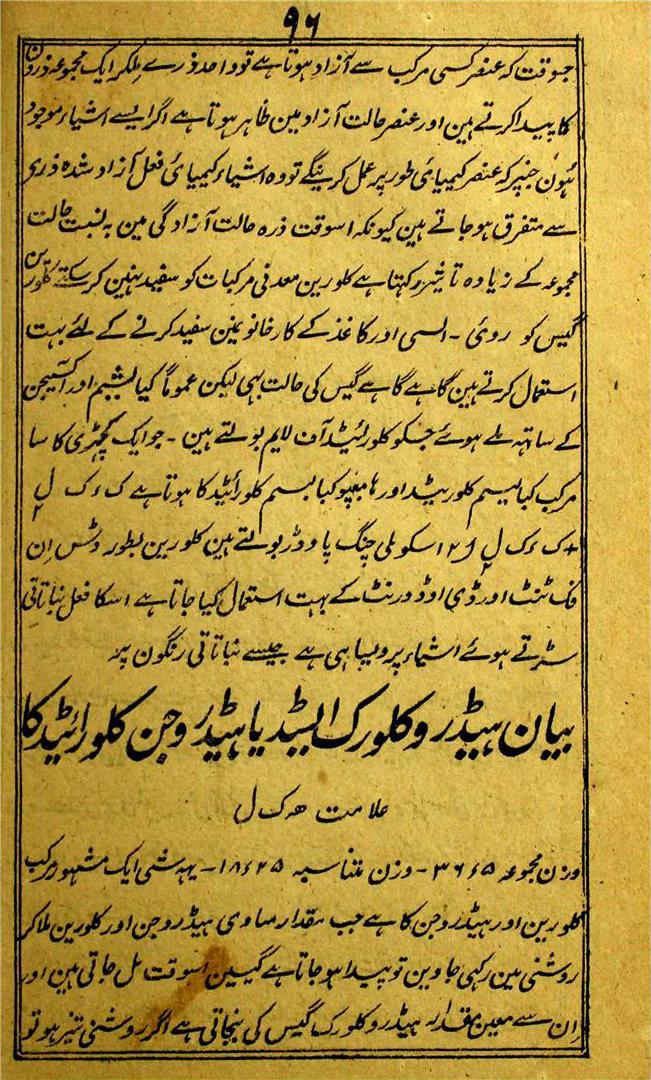 ۹۶
جسوقت کہ عنصر کسی مرکب سے آزاد ہوتا ہے تو واحد ذرے بلکہ ایک مجموعہ ذرون
کا پیدا کرتے ہین اور عنصر حالت آزاد مین ظاہر ہوتا ہے اگر ایسے اشیاء موجود
ہون جنپر کہ عنصر کیمیائی طور پر عمل کرینگے تو وہ اشیاء کیمیائی فعل آزاد شدہ ذری
سے متفرق ہو جاتے ہین کیونکہ اسوقت ذرہ حالت آزادگی مین بہ نسبت حالت
مجموعہ کے زیادہ تاثیر رکہتا ہے کلورین معدنی مرکبات کو سفید نہین کر سکتے کلورین
گیس کو روئی ۔ السی اور کاغذ کے کارخانونمین سفید کرنے کے لئے بہت
استعمال کرتے ہین گاہے گاہے گیس کی حالت بہی لیکن عموماً کیالشیم اور آکسیجن
کے ساتہہ ملے ہوئے جسکو کلورائیڈ آف لایم بولتے ہین ۔ جو ایک کھچڑی کا سا
مرکب کیالیسم کلوریٹد اور ہایپو کیالیسم کلورائیڈ کا ہوتا ہے ک ء ک ل ۲
+ ک ء ک ل ۲ ا ۲ اسکو بلی چنگ پاوڈر بولتے ہین کلورین بطور ڈس ان
فکٹنٹ اور ڈی اوڈورنٹ کے بہت استعمال کیا جاتا ہے اسکا فعل نباتاتی
سڑتے ہوئے اشیاء پر ویسا ہی ہے جیسے نباتاتی رنگون پر
بیان ہیڈروکلورک ایسڈ یا ہیڈروجن کلورائیڈ کا
علامت ھ ک ل
وزن مجموعہ ۳۶ء۵ ۔ وزن متناسبہ ۱۸ء۲۵ ۔ یہہ شی ایک مشہور مرکب
کلورین اور ہیڈروجن کا ہے جب مقدار مساوی ہیڈروجن اور کلورین ملا کر
روشنی مین رکہی جاوین تو پیدا ہو جاتا ہے گیسین اسوقت مل جاتی ہین اور
ان سے معین مقدار ہیڈروکلورک گیس کی بنجاتی ہے اگر روشنی تیز ہو تو